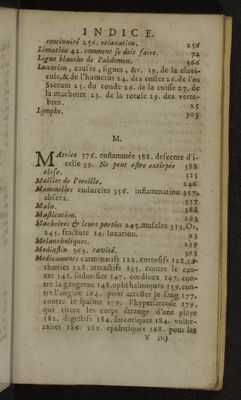 INDICE.
continuité 256. relaxation. 256
Limation 42. comment se doit faire. 72
Ligue blanche de l'abdomen. 366
Luxation, causes, signes, &c. 19. de la clavi-
cule, & de l'humerus 24. des costes 26. de l'os
Sacrum 25. du coude 26. de la cuisse 27. de
la machoire 23. de la rotule 29. des verte-
bres. 25
Lymphe. 305
M.
MAtrice 376. enflammée 388. descente d'i-
celle 39. Ne peut estre extirpée 388
close. 325
Maillet de l'oreille. 246
Mammelles endurcies 356. inflammation 357.
abscez. 357
Malin. 388
Mastication. 293
Machoires & leurs parties 245. muscles 315. Os,
245. fracture 14. luxation. 23
Melancholiques. 259
Mediastin 363. cavité. 363
Medicaments carminatifs 122. corrosifs 128. ca-
thartics 128. attractifs 135. contre le can-
cer 141. sudorifics 147. cordiaux 147. con-
tre la gangrene 148. ophthalmiques 159. con-
tre l'angine 164. pour arrester le sang 177.
contre le spasme 179. l'hypersarcose 179.
qui tirent les corps étrange d'une playe
182. digestifs 184. sarcotiques 184. vulne-
raires 186. 189. epulotiques 188. pour les
V iiij